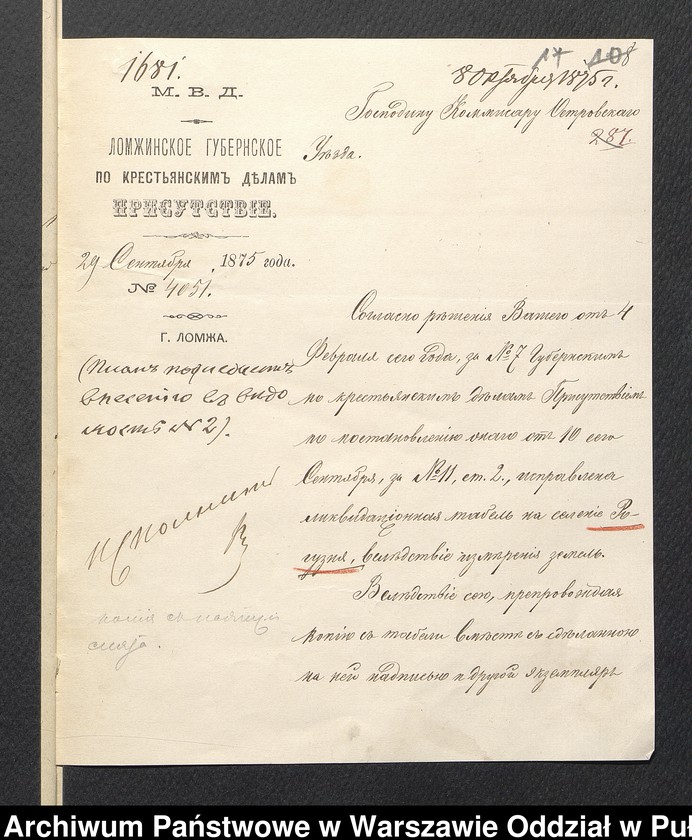 1681.
8 Октября 1875 г.
М. В. Д.
Господину Коммисару Островскаго
287.
Уѣзда.
ЛОМЖИНСКОЕ ГУБЕРНСКОЕ
ПО КРЕСТЬЯНСКИМЪ ДѢЛАМЪ
ПРИСУТСТВІЕ.
29 Сентября, 1875 года.
№ 4051.
Г. ЛОМЖА.
Согласно рѣшенія Вашего отъ 4
Февраля сего года, за № 7 Губернскимъ
по крестьянскимъ дѣламъ Присутствіемъ
по постановленію онаго отъ 10 сего
Сентября, за № 11, ст. 2., исправлена
ликвидаціонная табель на селеніе Ро-
гузня, вслѣдствіе измѣренія земель.
Вслѣдствіе сего, препровождая
копію съ табели вмѣстѣ съ сдѣланною
на ней надписью и другой экземпляръ
(Планъ подлежитъ
внесенію въ вѣдо
мость № 2).
Исполнить
копія съ
Archiwum Państwowe w Warszawie Oddział w Pu